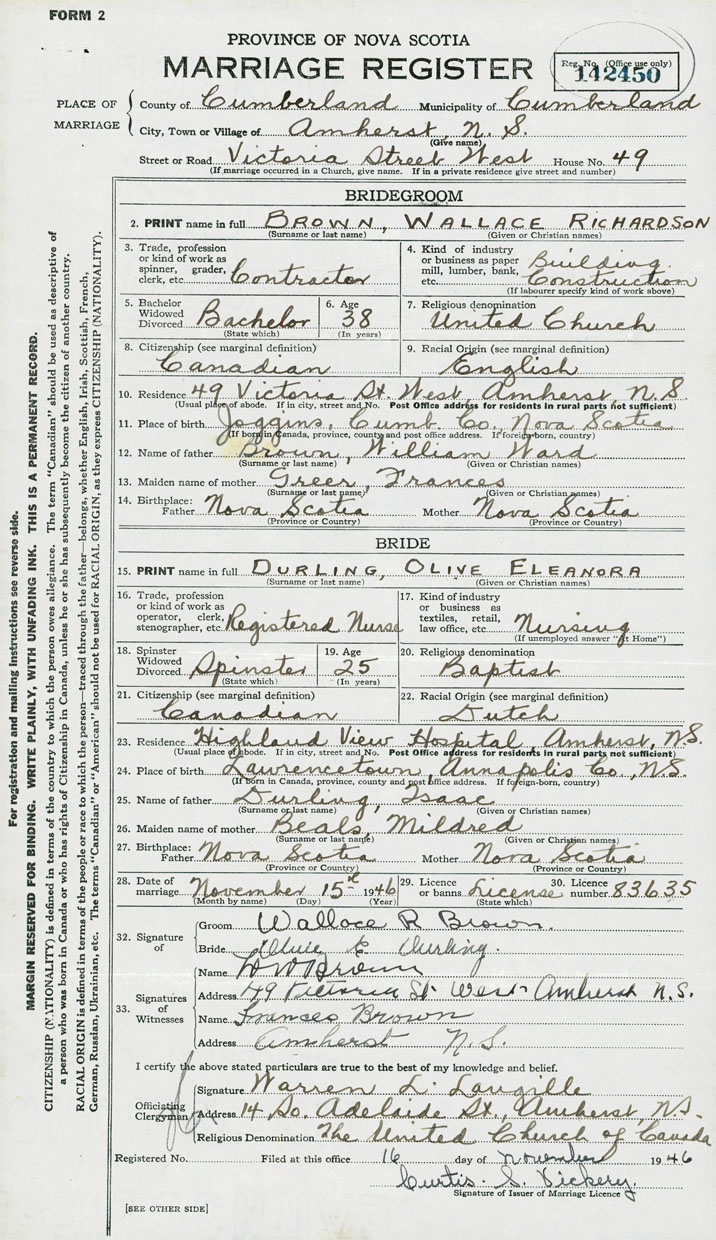 FORM 2
PROVINCE OF NOVA SCOTIA
MARRIAGE REGISTER
Reg. No. (Office use only)
142450
PLACE OF MARRIAGE
County of Cumberland Municipality of Cumberland
City, Town or Village of Amherst, N. S.
(Give name)
Street or Road Victoria Street West House No. 49
(If marriage occurred in a Church, give name. If in a private residence give street and number)
BRIDEGROOM
2. PRINT name in full BROWN, WALLACE RICHARDSON
(Surname or last name) (Given or Christian names)
3. Trade, profession or kind of work as spinner, grader, clerk, etc. Contractor
4. Kind of industry or business as paper mill, lumber, bank, etc. Building Construction
(If labourer specify kind of work above)
5. Bachelor Widowed Divorced Bachelor (State which)
6. Age 38 (In years)
7. Religious denomination United Church
8. Citizenship (see marginal definition) Canadian
9. Racial Origin (see marginal definition) English
10. Residence 49 Victoria St. West, Amherst, N.S.
(Usual place of abode. If in city, street and No. Post Office address for residents in rural parts not sufficient)
11. Place of birth Joggins, Cumb. Co., Nova Scotia
(If born in Canada, province, county and post office address. If foreign-born, country)
12. Name of father Brown, William Ward
(Surname or last name) (Given or Christian names)
13. Maiden name of mother Greer, Frances
(Surname or last name) (Given or Christian names)
14. Birthplace: Father Nova Scotia Mother Nova Scotia
(Province or Country) (Province or Country)
BRIDE
15. PRINT name in full DURLING, OLIVE ELEANORA
(Surname or last name) (Given or Christian names)
16. Trade, profession or kind of work as operator, clerk, stenographer, etc. Registered Nurse
17. Kind of industry or business as textiles, retail, law office, etc. Nursing
(If unemployed answer "at Home")
18. Spinster Widowed Divorced Spinster (State which)
19. Age 25 (In years)
20. Religious denomination Baptist
21. Citizenship (see marginal definition) Canadian
22. Racial Origin (see marginal definition) Dutch
23. Residence Highland View Hospital, Amherst, N.S.
(Usual place of abode. If in city, street and No. Post Office address for residents in rural parts not sufficient)
24. Place of birth Lawrencetown, Annapolis Co., N.S.
(If born in Canada, province, county and post office address. If foreign-born, country)
25. Name of father Durling, Isaac
(Surname or last name) (Given or Christian names)
26. Maiden name of mother Beals, Mildred
(Surname or last name) (Given or Christian names)
27. Birthplace: Father Nova Scotia Mother Nova Scotia
(Province or Country) (Province or Country)
28. Date of marriage November 15th 1946
(Month by name) (Day) (Year)
29. Licence or banns License (State which)
30. Licence number 83635
32. Signature of
Groom Wallace R Brown.
Bride Olive E Durling.
33. Signatures of Witnesses
Name W W Brown
Address 49 Victoria St West Amherst N.S.
Name Frances Brown
Address Amherst N.S.
I certify the above stated particulars are true to the best of my knowledge and belief.
Officiating Clergyman
Signature Warren L. Langille
Address 14 So. Adelaide St., Amherst, N.S.
Religious Denomination The United Church of Canada
Registered No. Filed at this office 16 day of November 1946
Curtis. S. Vickery.
Signature of Issuer of Marriage Licence
[SEE OTHER SIDE]
For registration and mailing instructions see reverse side.
MARGIN RESERVED FOR BINDING. WRITE PLAINLY, WITH UNFADING INK. THIS IS A PERMANENT RECORD.
CITIZENSHIP (NATIONALITY) is defined in terms of the country to which the person owes allegiance. The term "Canadian" should be used as descriptive of
a person who was born in Canada or who has rights of Citizenship in Canada, unless he or she has subsequently become the citizen of another country.
RACIAL ORIGIN is defined in terms of the people or race to which the person—traced through the father—belongs, whether English, Irish, Scottish, French,
German, Russian, Ukrainian, etc. The terms "Canadian" or "American" should not be used for RACIAL ORIGIN, as they express CITIZENSHIP (NATIONALITY).